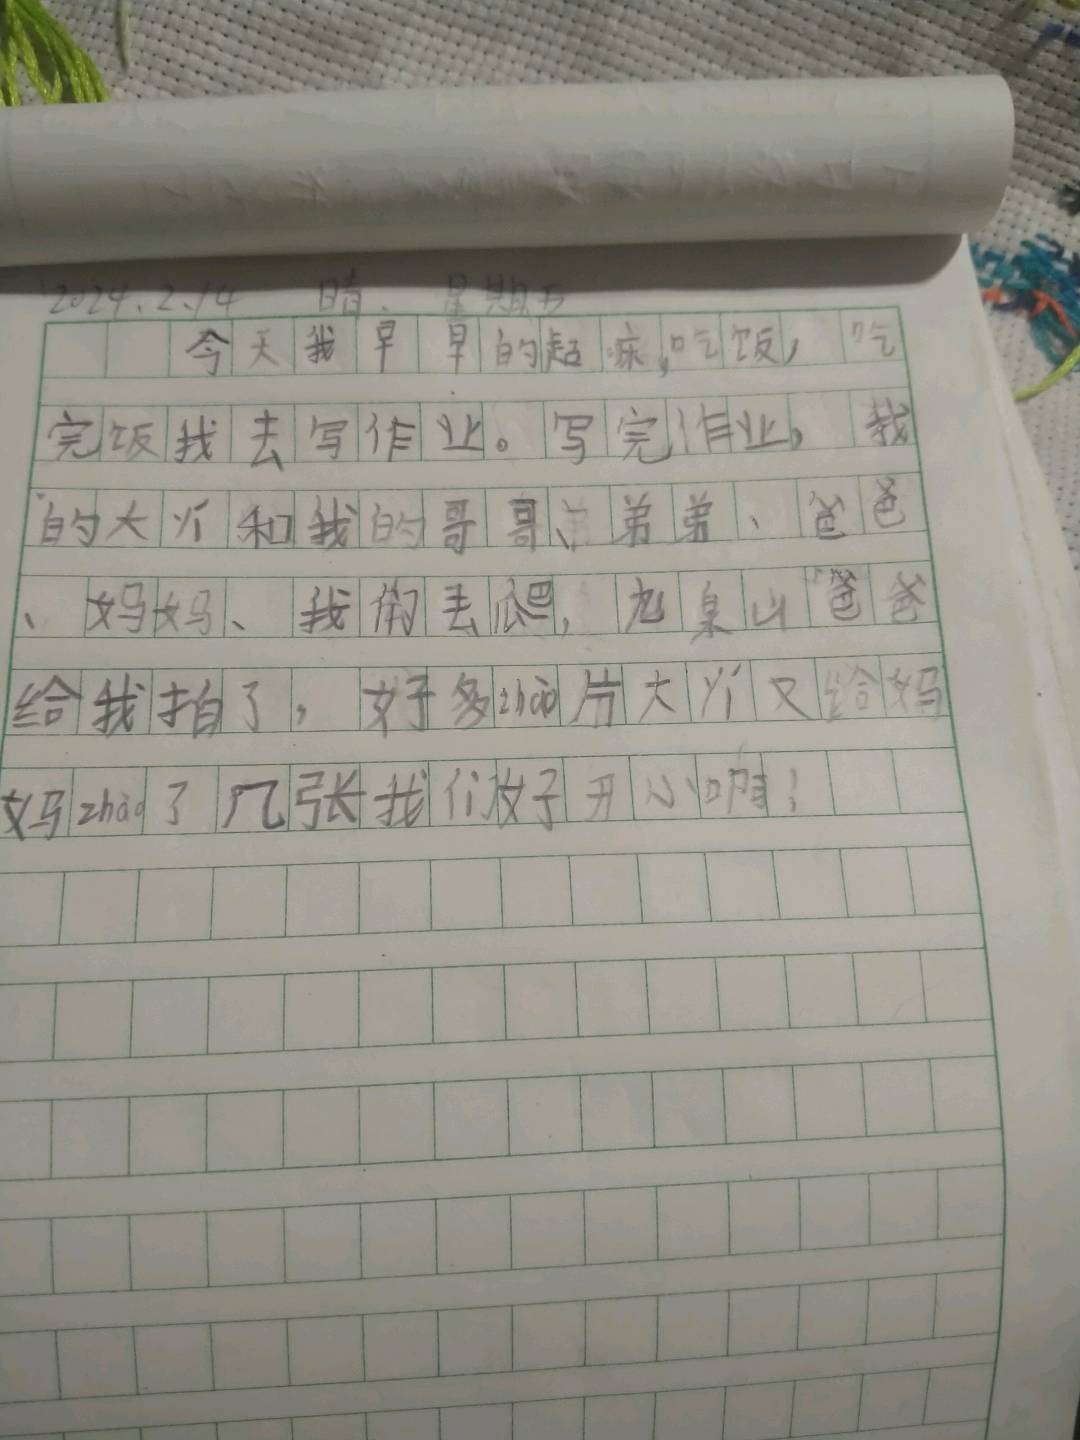 2024.2.14 晴. 星期五
今天我早早的起床,吃饭,吃
完饭我去写作业。写完作业,我
的大爷和我的哥哥、弟弟、爸爸
、妈妈、我们去爬,九泉山爸爸
给我拍了,好多zhào片大爷又给妈
妈zhào了几张我们好开心啊!